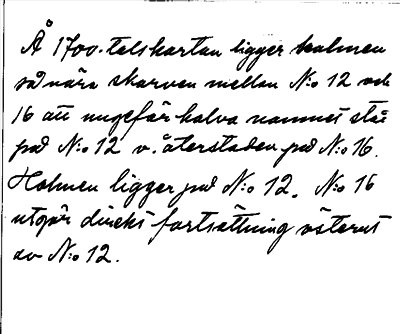 Å 1700-talskartan ligger holmen
så nära skarven mellan N:o 12 och
16 att ungefär halva namnet står
på N:o 12 o. återstoden på N:o 16.
Holmen ligger på N:o 12. N:o 16
utgör direkt fortsättning västerut
av N:o 12.